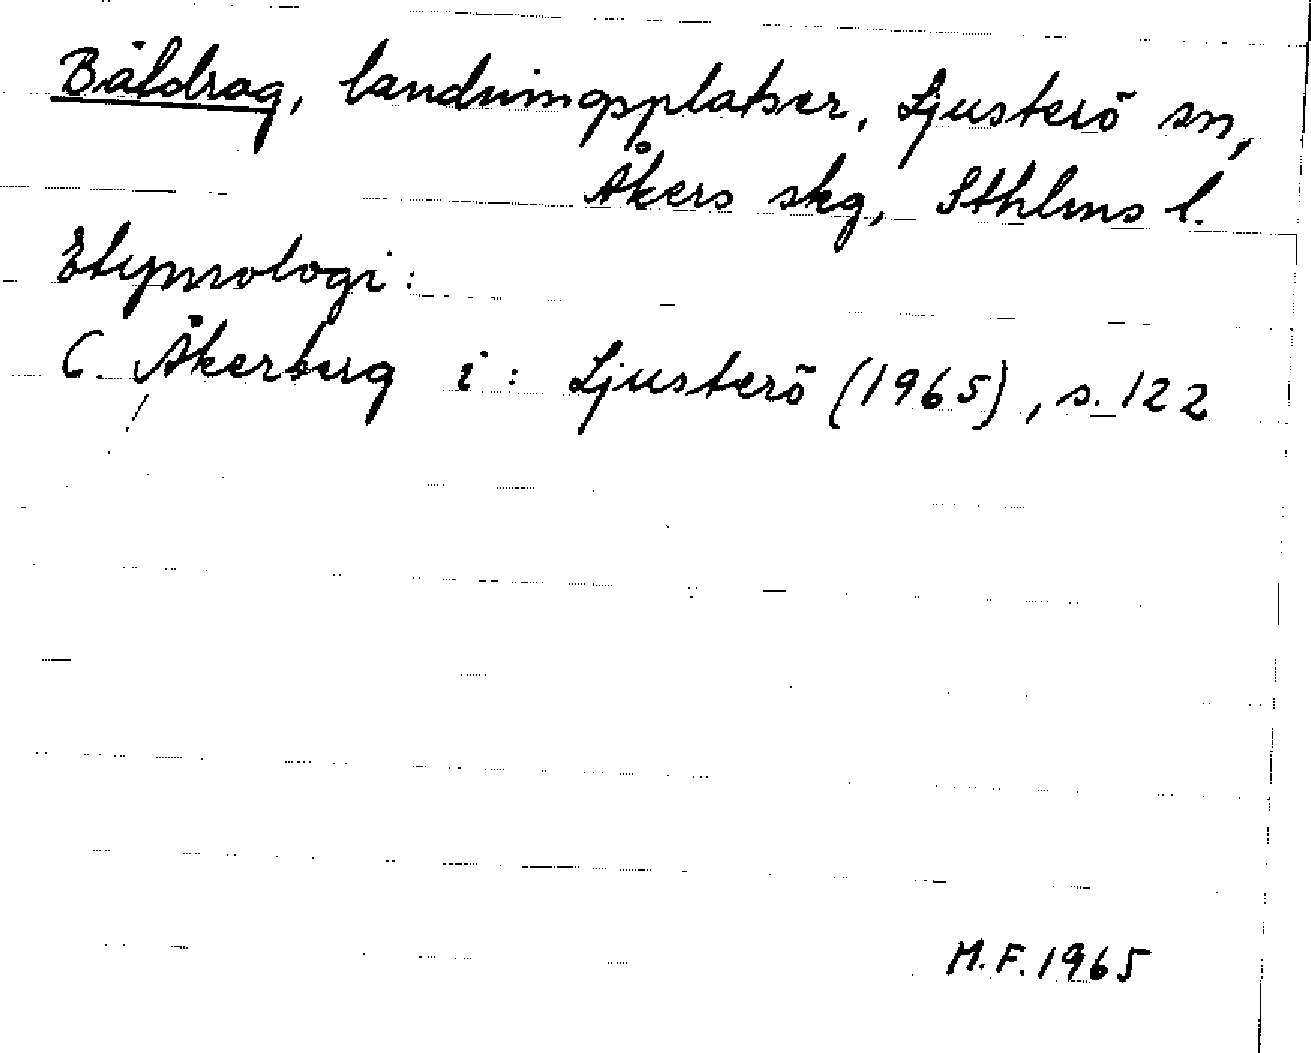 Båtdrag, landningsplatser, Ljusterö sn,
Åkers skg, Sthlms l.
Etymologi:
C. Åkerberg i: Ljusterö (1965), s. 122
M.F. 1965